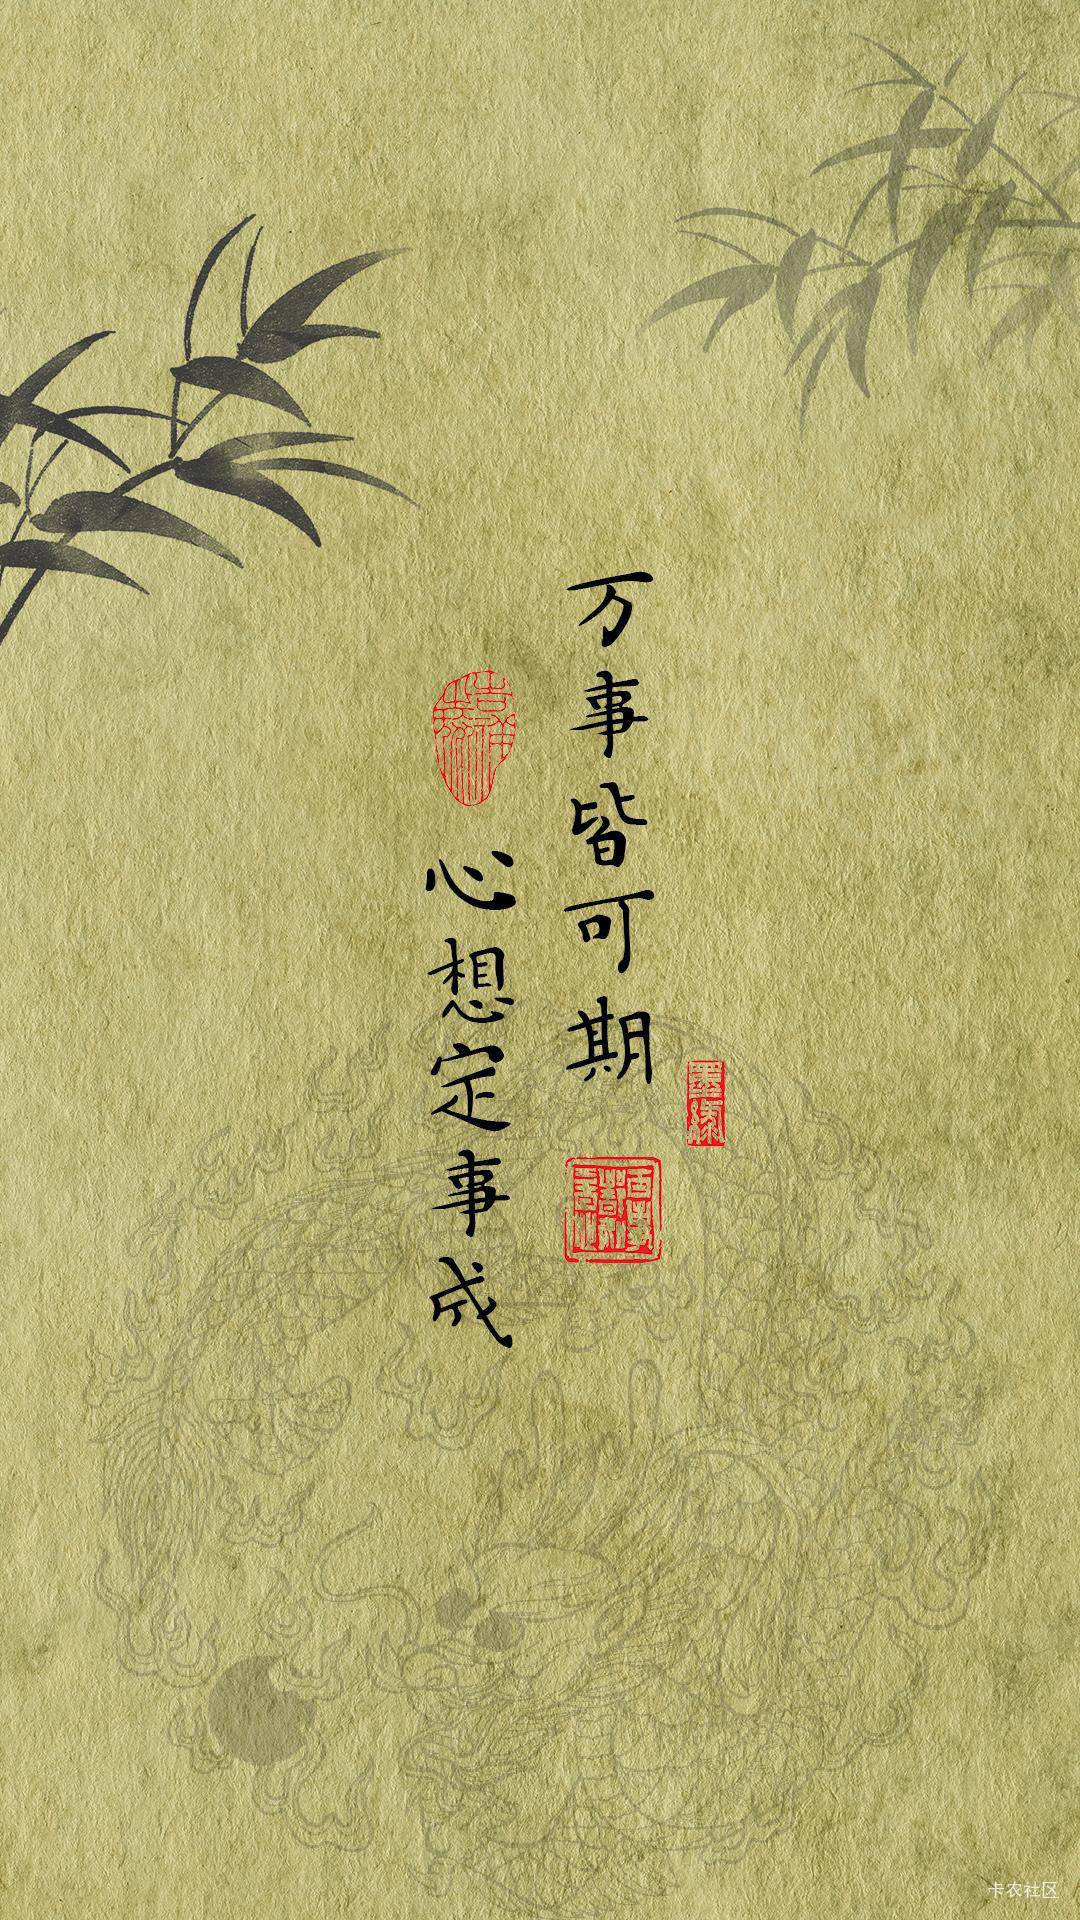 万事皆可期
心想定事成
卡农社区